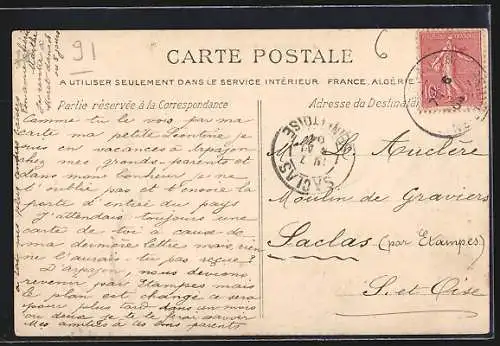 91
6
CARTE POSTALE
A UTILISER SEULEMENT DANS LE SERVICE INTÉRIEUR. FRANCE, ALGÉRIE
Partie réservée à la Correspondance
Adresse du Destinataire
Comme tu le vois par ma
carte ma petite Léontine, je
suis en vacances à Arpajon
chez mes grands-parents et
dans mon bonheur je ne
t'oublie pas et t'envoie la
porte d'entrée du pays
J'attendais toujours une
carte de toi à cause de
ma dernière lettre mais, rien
ne l'aurais-tu pas reçue?
D'Arpajon, nous devions
revenir par Etampes mais
le plan est changé ce sera
pour plus tard dans un mois
ou deux je te le ferai savoir
Mes amitiés à tes bons parents
Melle L. Auclère
Moulin de Graviers
Saclas (par Etampes)
S. et Oise
SACLAS
10